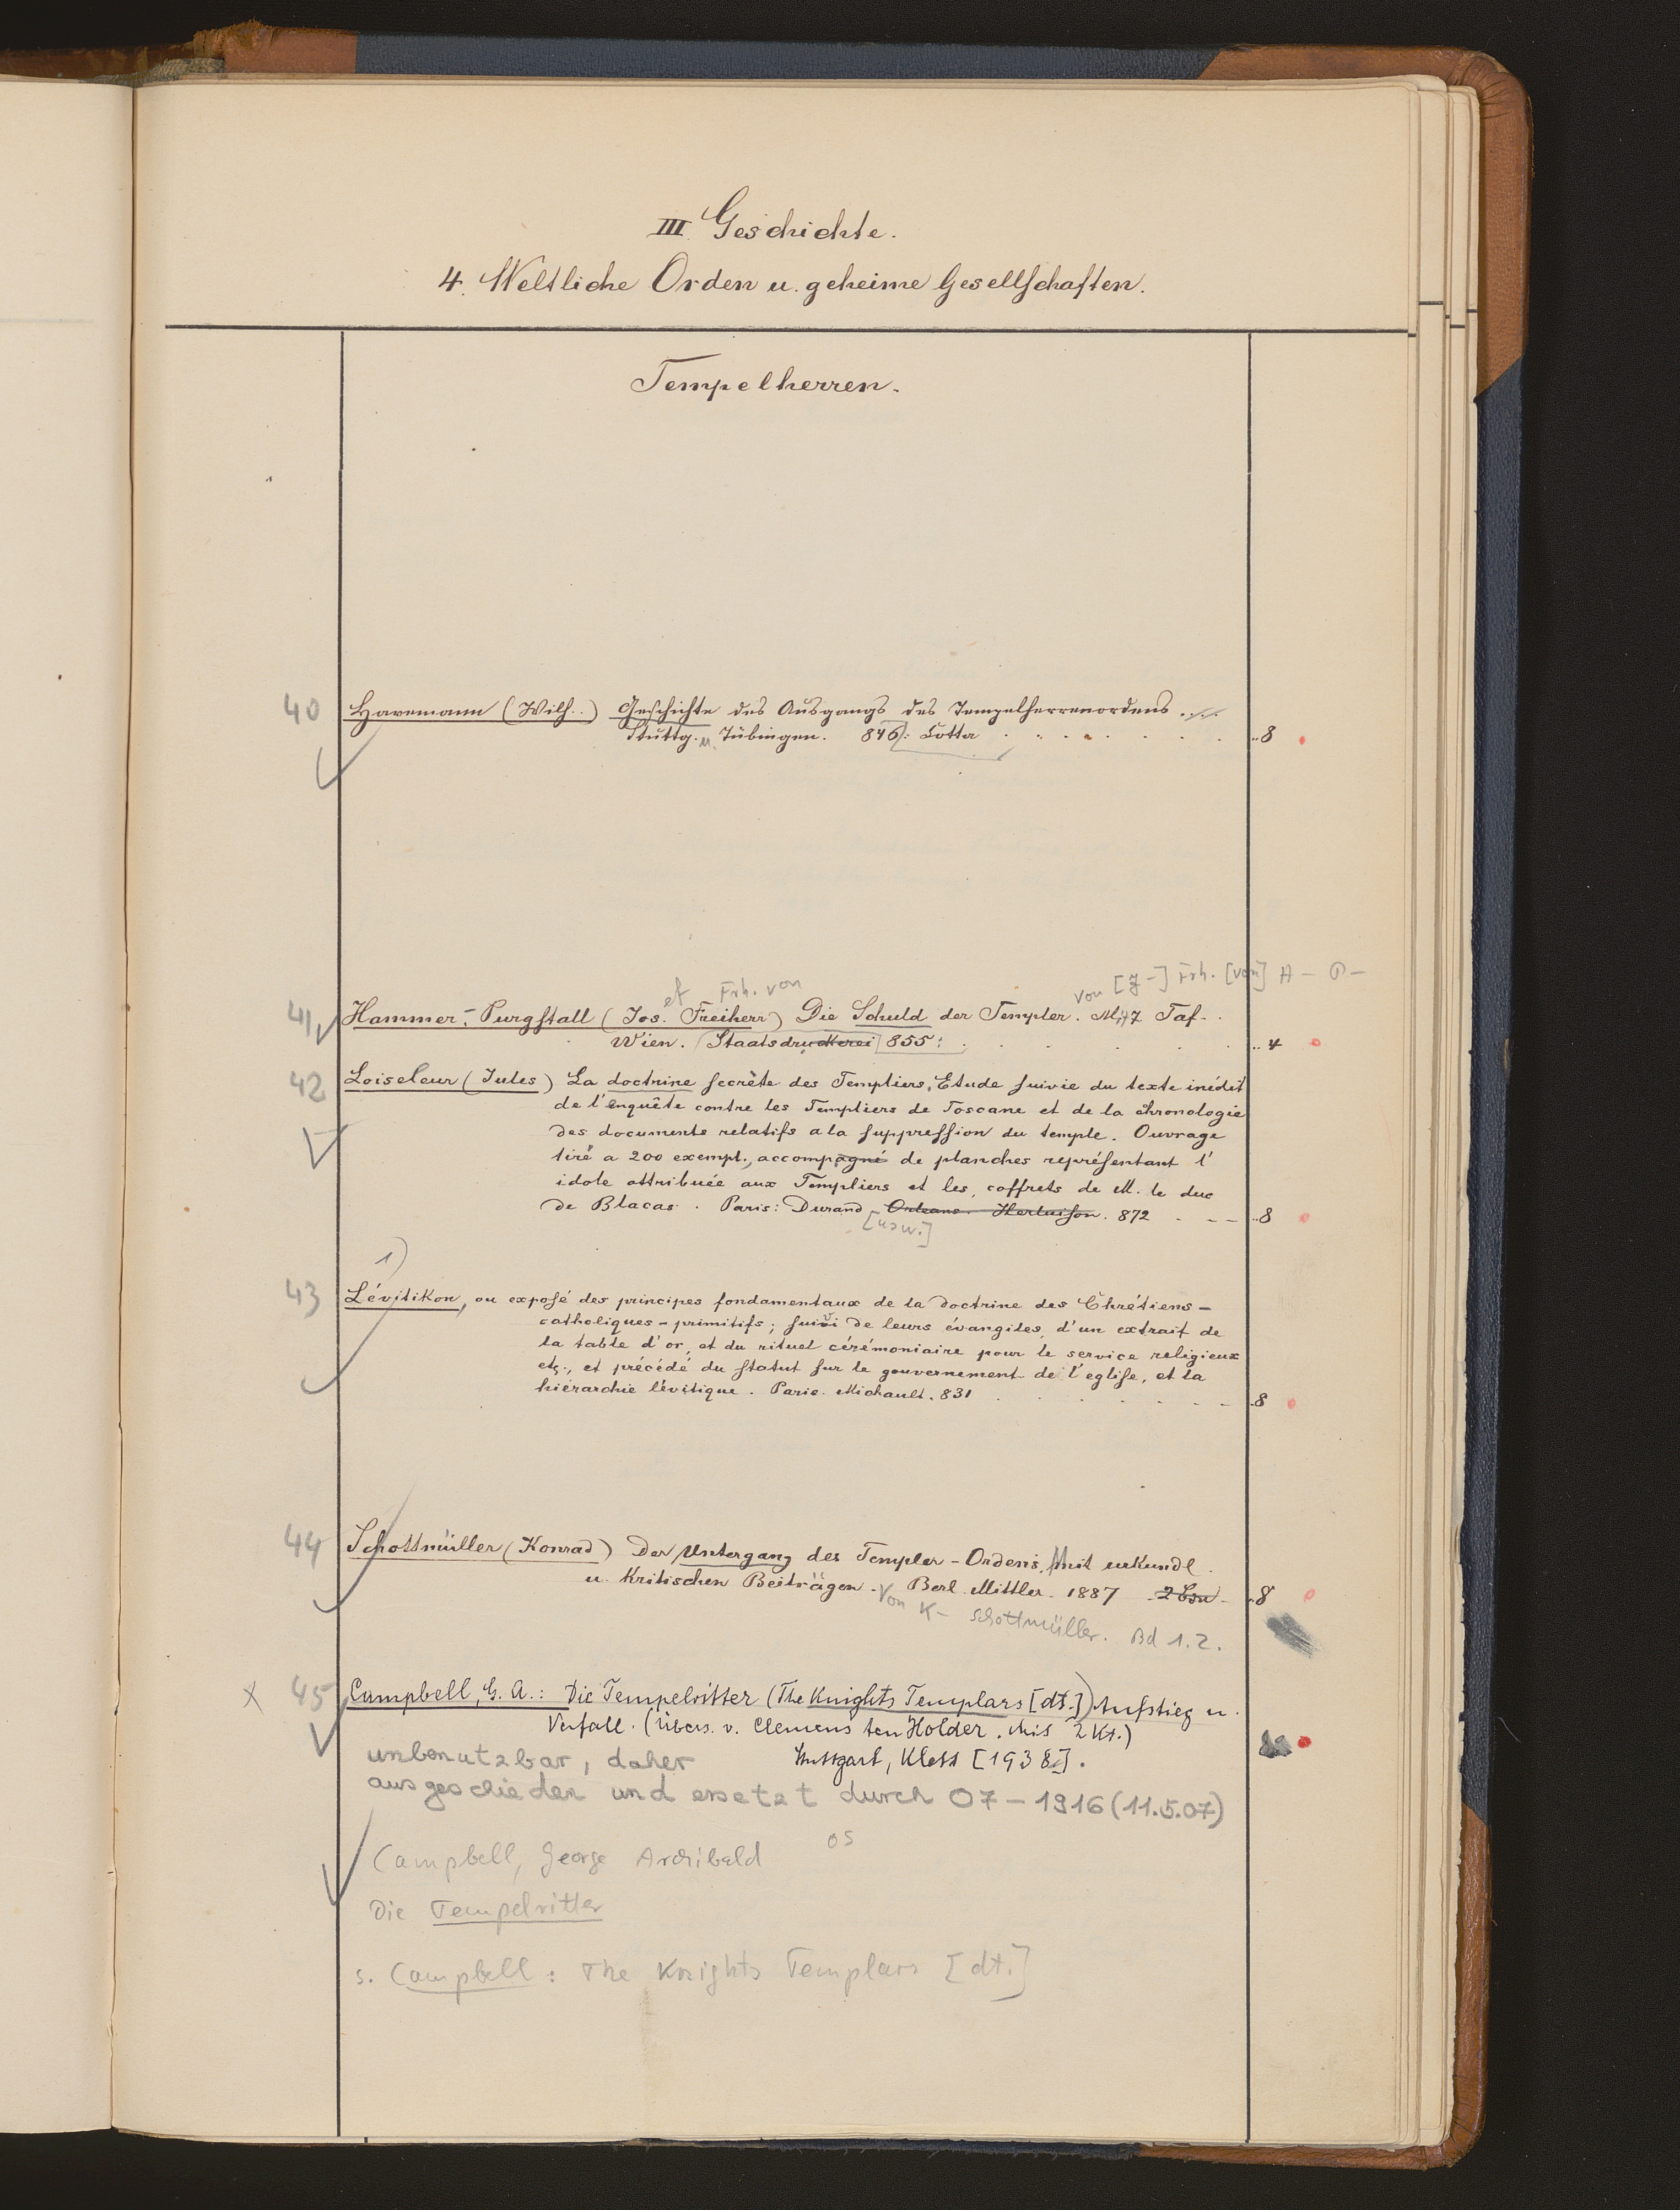 III Geschichte.
4. Weltliche Orden u. geheime Gesellschaften.
Tempelherren.
40 Havemann (Wilh..) Geschichte des Ausgangs des Tempelherrenordens ....
Stuttg. u. Tübingen. 846: Cotta ..8
et Frh. von von [J-] Frh. [von] H- P-
41 Hammer-Purgstall (Jos. Freiherr) Die Schuld der Templer. Mit 7 Taf.
Wien. Staatsdruckerei 855: ..4
42 Loiseleur (Jules) La doctrine secrète des Templiers, Etude suivie du texte inédit
de l'enquête contre les Templiers de Toscane et de la chronologie
des documents relatifs a la suppression du temple. Ouvrage
tiré a 200 exempl., accompagné de planches représentant l'
idole attribuée aux Templiers et les coffrets de M. le duc
de Blacas. Paris: Durand Orleans. Herluison. 872 ..8
[usw.]
1)
43 Lévitikon, ou exposé des principes fondamentaux de la doctrine des Chrétiens-
catholiques-primitifs; suivi de leurs évangiles, d'un extrait de
la table d'or, et du rituel cérémoniaire pour le service religieux
etc., et précédé du statut sur le gouvernement de l'eglise, et la
hiérarchie lévitique. Paris. Michault. 831 .8
44 Schottmüller (Konrad) Der Untergang des Templer-Ordens, Mit urkundl.
u. Kritischen Beiträgen. Berl. Mittler. 1887 ..8
Von K- Schottmüller. Bd 1.2.
x 45 Campbell, G. A.: Die Tempelritter (The Knights Templars [dt.]) Aufstieg u.
Verfall. (Übers. v. Clemens ten Holder. Mit 2 Kt.)
unbenutzbar, daher Stuttgart, Klett [1938].
ausgeschieden und ersetzt durch 07-1916 (11.5.07)
os
Campbell, George Archibald
Die Tempelritter
s. Campbell: The Knights Templars [dt.]